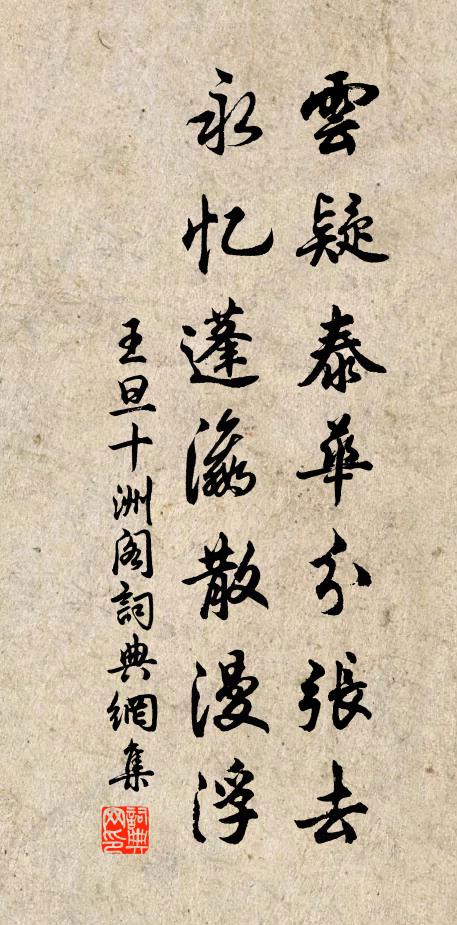 雲疑泰華分張去
永忆蓬瀛散漫浮
王旦十洲阁詞典網集
詞典网印